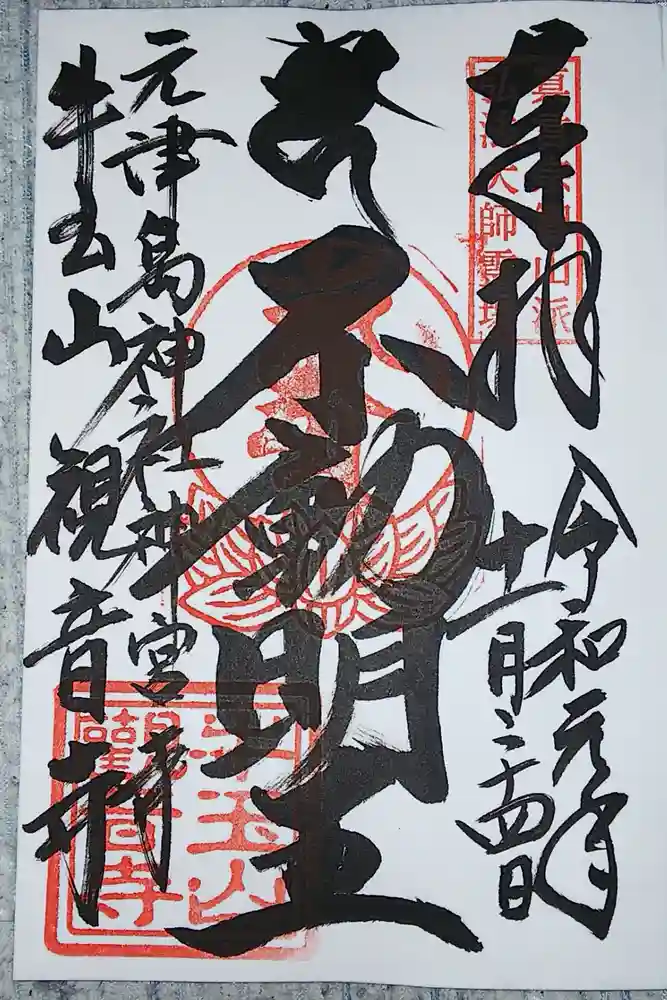 奉拝
令和元年
十一月二十四日
不動明王
元津島神社神宮寺
牛玉山観音寺
真言宗智山派
弘法大師霊場
牛玉山
觀音寺